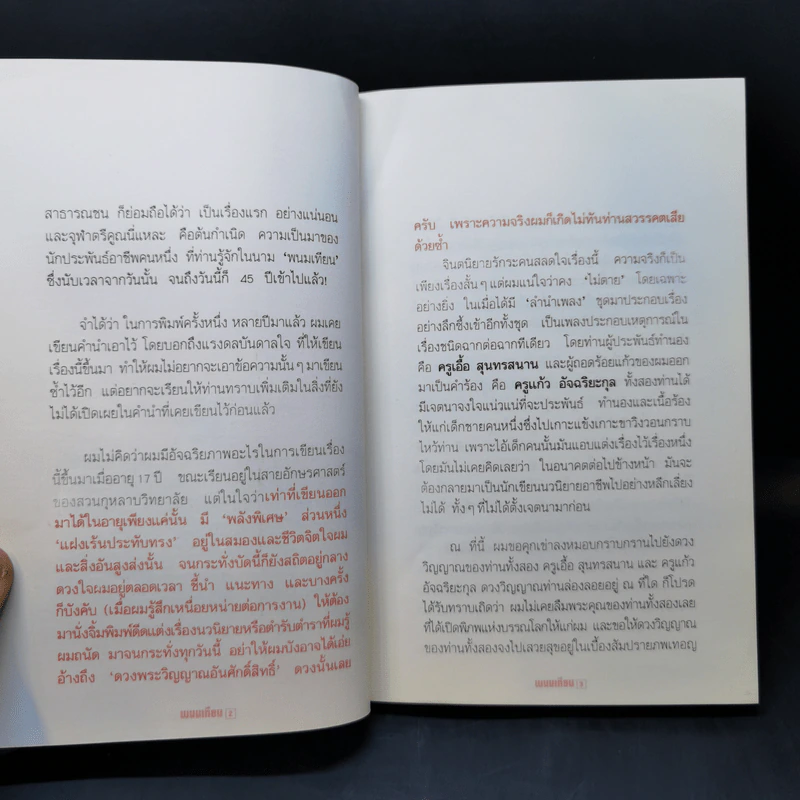 สาธารณชน ก็ย่อมถือได้ว่า เป็นเรื่องแรก อย่างแน่นอน
และจุฬาตรีคูณนี่แหละ คือต้นกำเนิด ความเป็นมาของ
นักประพันธ์อาชีพคนหนึ่ง ที่ท่านรู้จักในนาม ‘พนมเทียน’
ซึ่งนับเวลาจากวันนั้น จนถึงวันนี้ก็ 45 ปีเข้าไปแล้ว!
จำได้ว่า ในการพิมพ์ครั้งหนึ่ง หลายปีมาแล้ว ผมเคย
เขียนคำนำเอาไว้ โดยบอกถึงแรงดลบันดาลใจ ที่ให้เขียน
เรื่องนี้ขึ้นมา ทำให้ผมไม่อยากจะเอาข้อความนั้นๆ มาเขียน
ซ้ำไว้อีก แต่อยากจะเรียนให้ท่านทราบเพิ่มเติมในสิ่งที่ยัง
ไม่ได้เปิดเผยในคำนำที่เคยเขียนไว้ก่อนแล้ว
ผมไม่คิดว่าผมมีอัจฉริยภาพอะไรในการเขียนเรื่อง
นี้ขึ้นมาเมื่ออายุ 17 ปี ขณะเรียนอยู่ในสายอักษรศาสตร์
ของสวนกุหลาบวิทยาลัย แต่ในใจว่าเท่าที่เขียนออก
มาได้ในอายุเพียงแค่นั้น มี ‘พลังพิเศษ’ ส่วนหนึ่ง
‘แฝงเร้นประทับทรง’ อยู่ในสมองและชีวิตจิตใจผม
และสิ่งอันสูงส่งนั้น จนกระทั่งบัดนี้ก็ยังสถิตอยู่กลาง
ดวงใจผมอยู่ตลอดเวลา ชี้นำ แนะทาง และบางครั้ง
ก็บังคับ (เมื่อผมรู้สึกเหนื่อยหน่ายต่อการงาน) ให้ต้อง
มานั่งจิ้มพิมพ์ดีดแต่งเรื่องนวนิยายหรือตำรับตำราที่ผมรู้
ผมถนัด มาจนกระทั่งทุกวันนี้ อย่าให้ผมบังอาจได้เอ่ย
อ้างถึง ‘ดวงพระวิญญาณอันศักดิ์สิทธิ์’ ดวงนั้นเลย
พนมเทียน 2
ครับ เพราะความจริงผมก็เกิดไม่ทันท่านสวรรคตเสีย
ด้วยซ้ำ
จินตนิยายรักระคนสลดใจเรื่องนี้ ความจริงก็เป็น
เพียงเรื่องสั้นๆ แต่ผมแน่ใจว่าคง ‘ไม่ตาย’ โดยเฉพาะ
อย่างยิ่ง ในเมื่อได้มี ‘ลำนำเพลง’ ชุดมาประกอบเรื่อง
อย่างลึกซึ้งเข้าอีกทั้งชุด เป็นเพลงประกอบเหตุการณ์ใน
เรื่องชนิดฉากต่อฉากทีเดียว โดยท่านผู้ประพันธ์ทำนอง
คือ ครูเอื้อ สุนทรสนาน และผู้ถอดร้อยแก้วของผมออก
มาเป็นคำร้อง คือ ครูแก้ว อัจฉริยะกุล ทั้งสองท่านได้
มีเจตนาจงใจแน่วแน่ที่จะประพันธ์ ทำนองและเนื้อร้อง
ให้แก่เด็กชายคนหนึ่งซึ่งไปเกาะแข้งเกาะขาวิงวอนกราบ
ไหว้ท่าน เพราะไอ้เด็กคนนั้นมันแอบแต่งเรื่องไว้เรื่องหนึ่ง
โดยมันไม่เคยคิดเลยว่า ในอนาคตต่อไปข้างหน้า มันจะ
ต้องกลายมาเป็นนักเขียนนวนิยายอาชีพไปอย่างหลีกเลี่ยง
ไม่ได้ ทั้งๆ ที่ไม่ได้ตั้งเจตนามาก่อน
ณ ที่นี้ ผมขอคุกเข่าลงหมอบกราบกรานไปยังดวง
วิญญาณของท่านทั้งสอง ครูเอื้อ สุนทรสนาน และ ครูแก้ว
อัจฉริยะกุล ดวงวิญญาณท่านล่องลอยอยู่ ณ ที่ใด ก็โปรด
ได้รับทราบเถิดว่า ผมไม่เคยลืมพระคุณของท่านทั้งสองเลย
ที่ได้เปิดพิภพแห่งบรรณโลกให้แก่ผม และขอให้ดวงวิญญาณ
ของท่านทั้งสองจงไปเสวยสุขอยู่ในเบื้องสัมปรายภพเทอญ
พนมเทียน 3